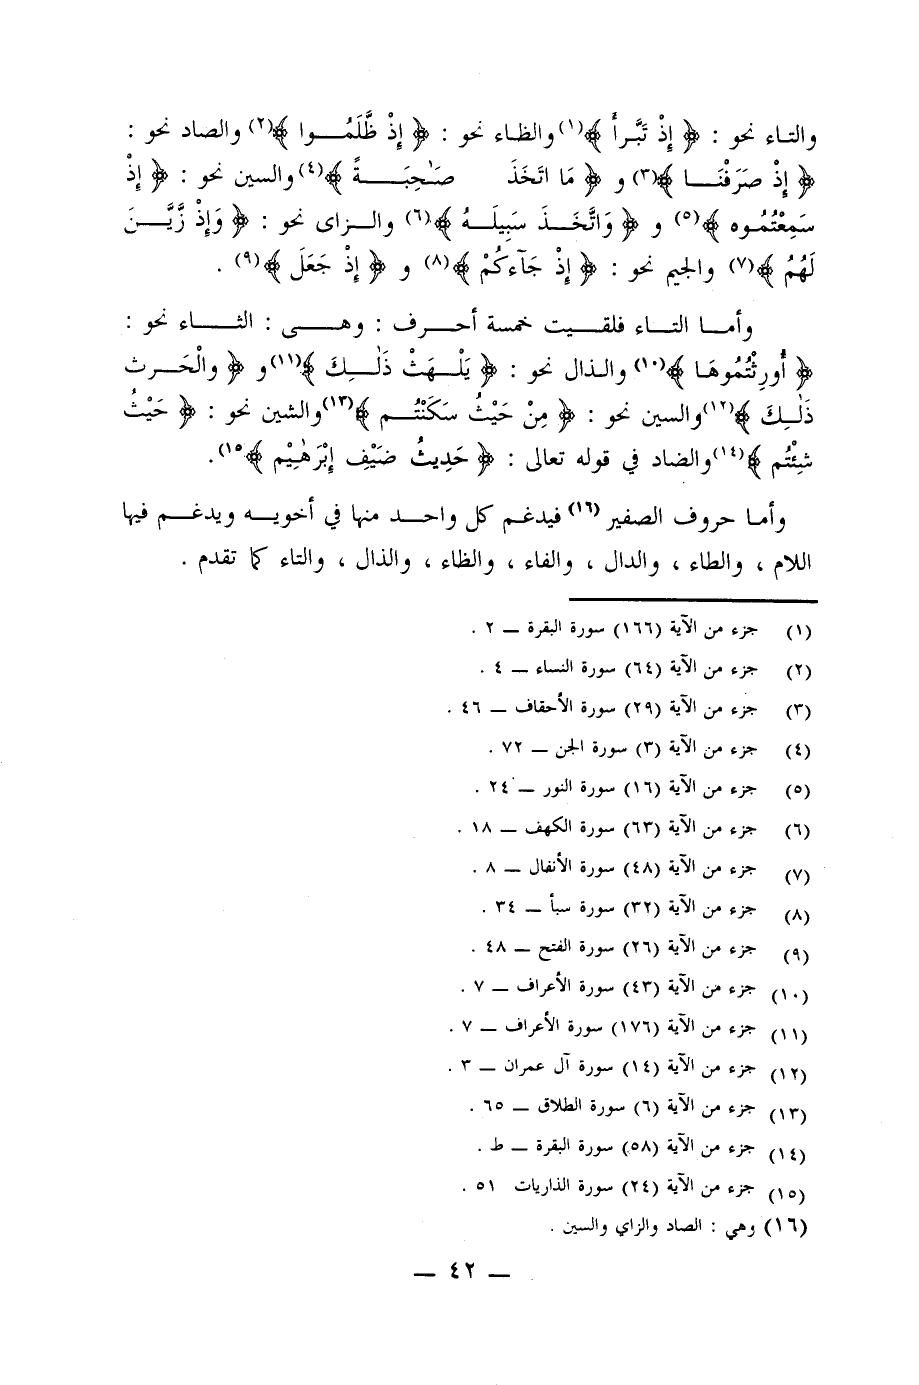 والتاء نحو : ﴿ إِذْ تَبَّرأَ ﴾(١) والظاء نحو : ﴿ إِذْ ظَّلَمُوا ﴾(٢) والصاد نحو :
﴿ إِذْ صَرَفْنَا ﴾(٣) و ﴿ مَا اتَّخَذَ صَٰحِبَةً ﴾(٤) والسين نحو : ﴿ إِذْ
سَمِعْتُمُوه ﴾(٥) و ﴿ وَاتَّخَذَ سَبِيلَهُ ﴾(٦) والزاى نحو : ﴿ وَإِذْ زَّيَّنَ
لَهُمُ ﴾(٧) والجيم نحو : ﴿ إِذْ جَآءَكُمْ ﴾(٨) و ﴿ إِذْ جَعَلَ ﴾(٩) .
وأما التاء فلقيت خمسة أحرف : وهى : الثاء نحو :
﴿ أُورِثْتُمُوهَا ﴾(١٠) والذال نحو : ﴿ يَلْهَثْ ذَٰلِكَ ﴾(١١) و ﴿ والْحَرث
ذَٰلِكَ ﴾(١٢) والسين نحو : ﴿ مِنْ حَيْثُ سَكَنْتُم ﴾(١٣) والشين نحو : ﴿ حَيْثُ
شِئْتُم ﴾(١٤) والضاد في قوله تعالى : ﴿ حَدِيثُ ضَيْفِ إِبْرَٰهِيْم ﴾(١٥).
وأما حروف الصفير (١٦) فيدغم كل واحد منها في أخويه ويدغم فيها
اللام ، والطاء ، والدال ، والفاء ، والظاء ، والذال ، والتاء كما تقدم .
(١) جزء من الآية (١٦٦) سورة البقرة — ٢ .
(٢) جزء من الآية (٦٤) سورة النساء — ٤ .
(٣) جزء من الآية (٢٩) سورة الأحقاف — ٤٦ .
(٤) جزء من الآية (٣) سورة الجن — ٧٢ .
(٥) جزء من الآية (١٦) سورة النور — ٢٤ .
(٦) جزء من الآية (٦٣) سورة الكهف — ١٨ .
(٧) جزء من الآية (٤٨) سورة الأنفال — ٨ .
(٨) جزء من الآية (٣٢) سورة سبأ — ٣٤ .
(٩) جزء من الآية (٢٦) سورة الفتح — ٤٨ .
(١٠) جزء من الآية (٤٣) سورة الأعراف — ٧ .
(١١) جزء من الآية (١٧٦) سورة الأعراف — ٧ .
(١٢) جزء من الآية (١٤) سورة آل عمران — ٣ .
(١٣) جزء من الآية (٦) سورة الطلاق — ٦٥ .
(١٤) جزء من الآية (٥٨) سورة البقرة — ط .
(١٥) جزء من الآية (٢٤) سورة الذاريات ٥١ .
(١٦) وهي : الصاد والزاي والسين .
— ٤٢ —